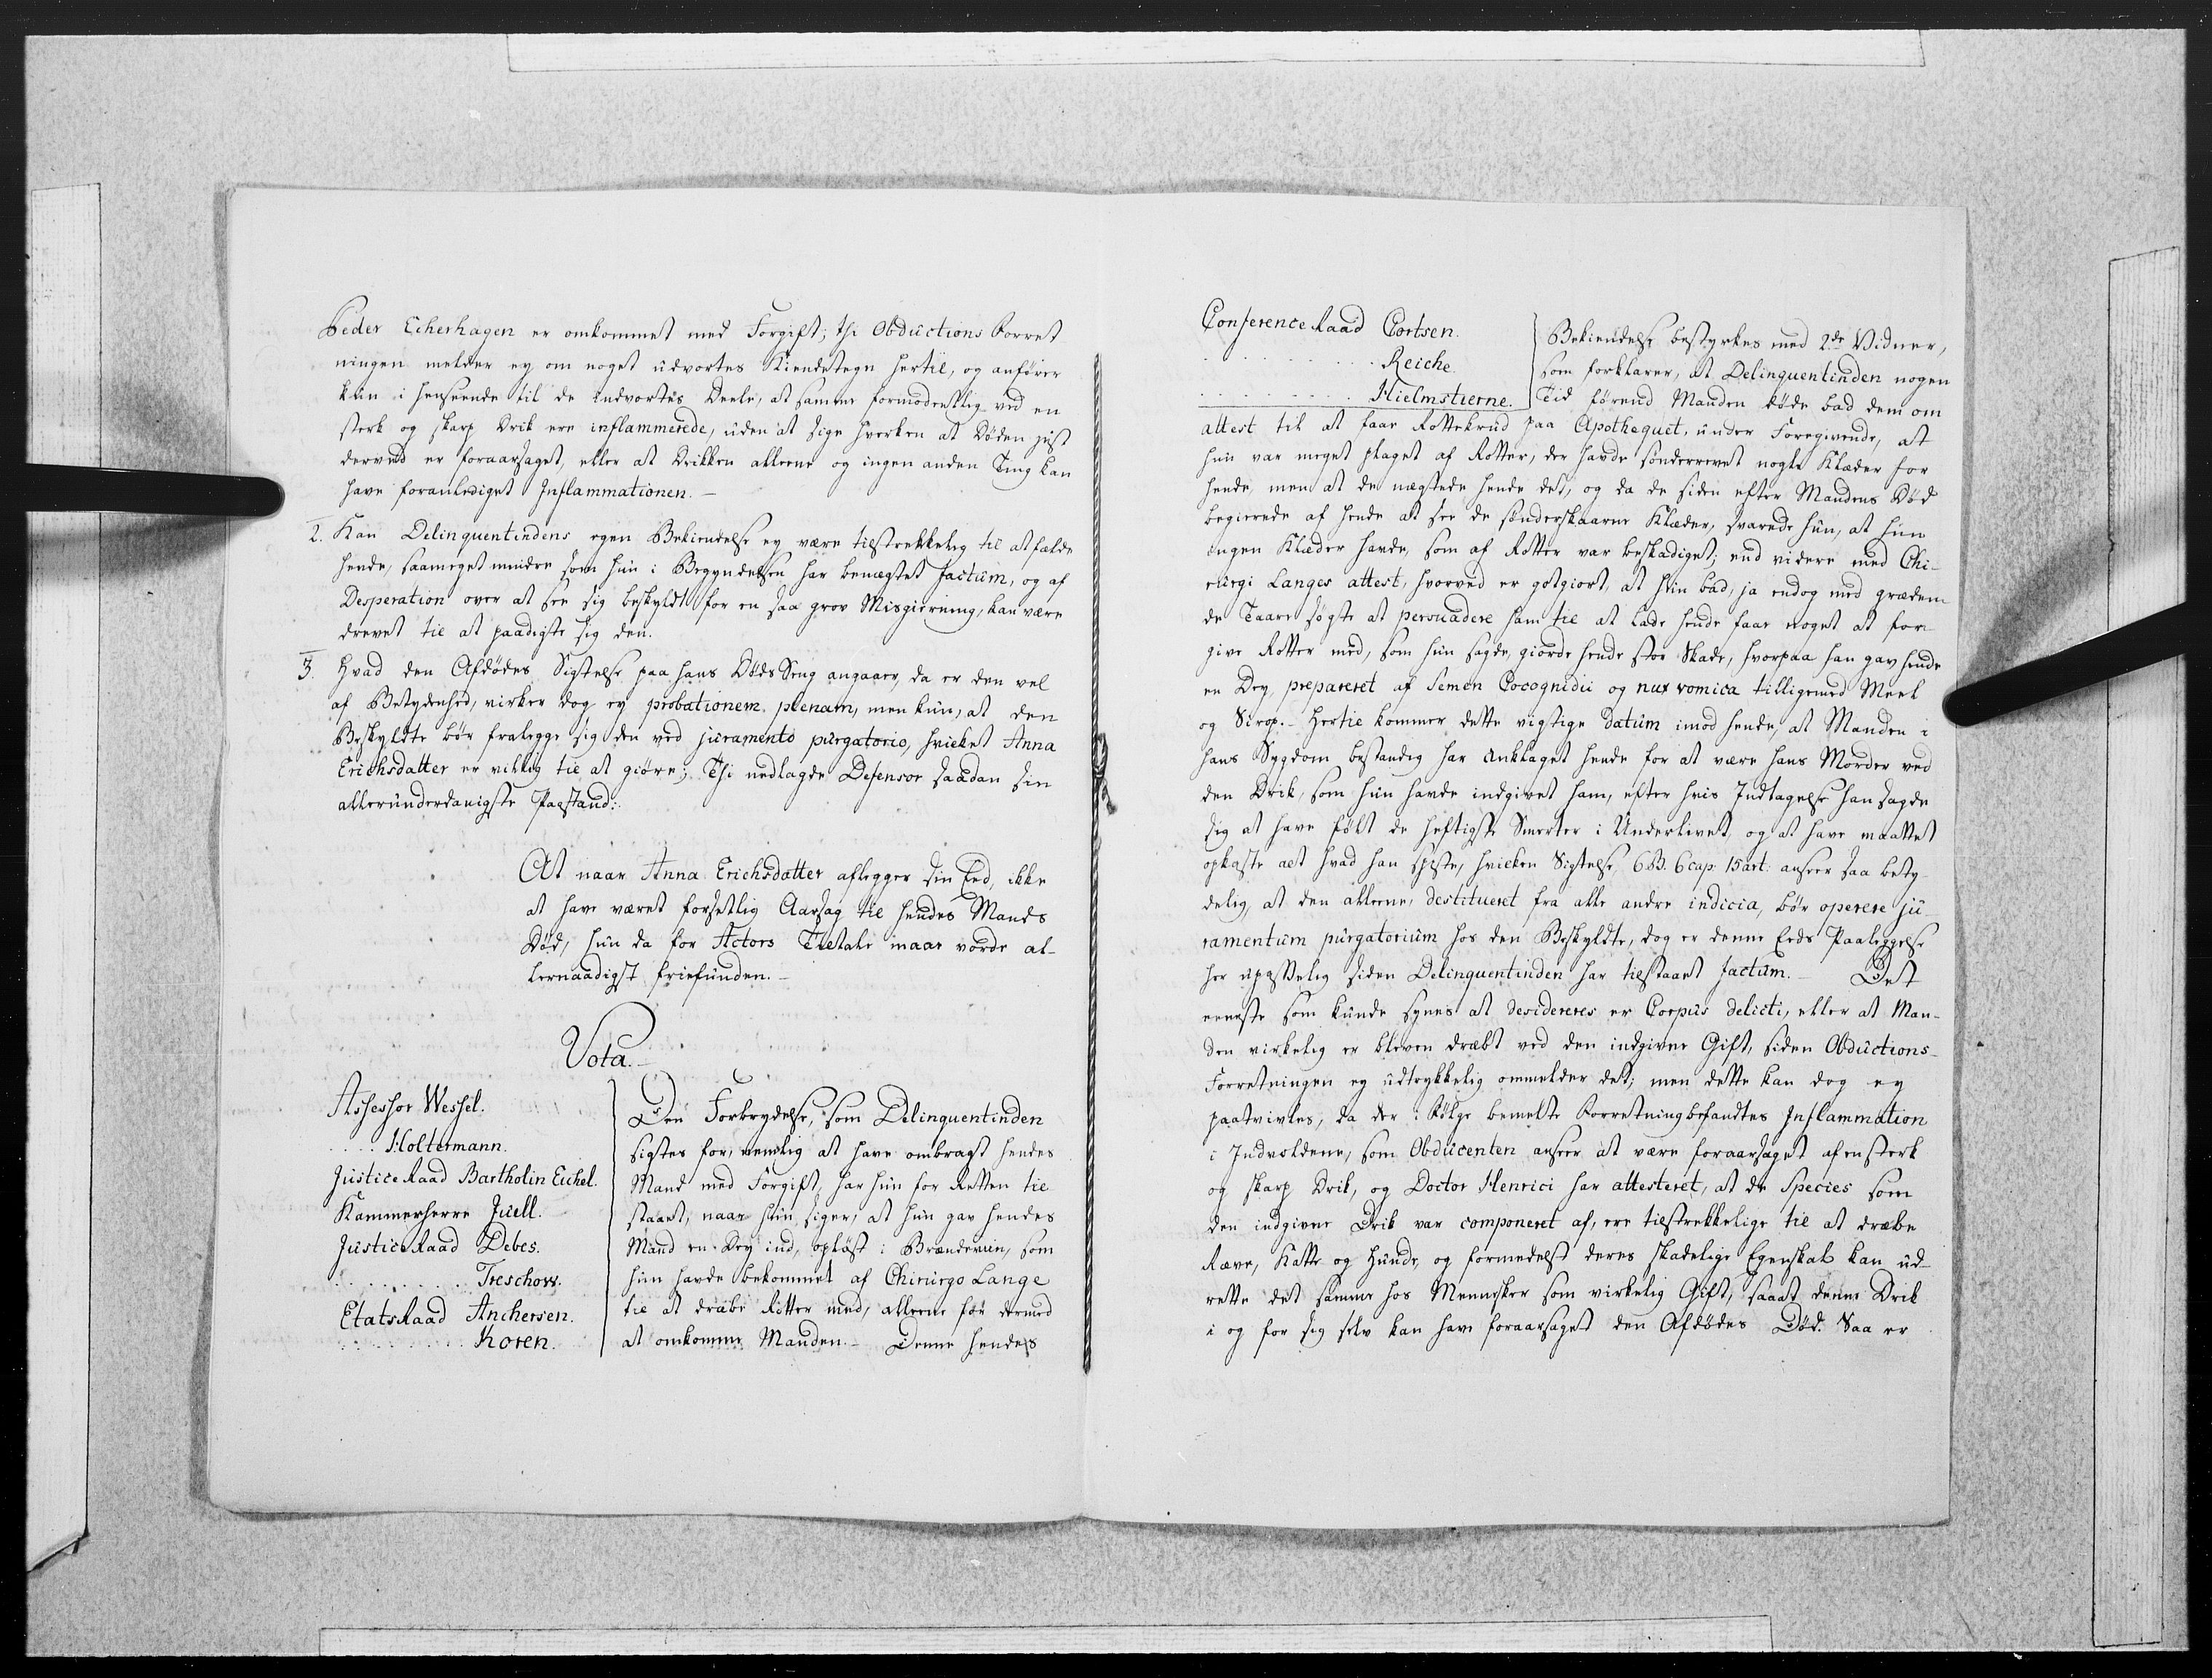 Peder Eiherhagen er omkommet med Forgift; thi Obductions Forret
ningen melder ey om noget udvortes Kiendetegn hertil, og anfører
kun i henseende til de indvortes Deele, at samme formodentlig ved en
sterk og skarp Drik ere inflammerede, uden at sige hverken at Døden just
derved er foraarsaget, eller at Drikken alleene og ingen anden Ting kan
have foranlediget Inflammationen.-
2. Kan Delinquentindens egen Bekiendelse ey være tilstrekkelig til at fælde
hende, saameget mindre som hun i Begyndelsen har benægtet factum, og af
Desperation over at see sig beskyldt for en saa grov Misgierning, kan være
drevet til at paadigte sig den.
3. Hvad den Afdødes Sigtelse paa hans Døds Seng angaaer, da er den vel
af Betydenhed, virker dog ey probationem plenam, men kun, at den
Beskyldte bør fralegge sig den ved juramento purgatorio, hvilket Anna
Erichsdatter er villig til at giøre; Thi nedlagde Defensor saadan sin
allerunderdanigste Paastand:
At naar Anna Erichsdatter aflegger sin Eed, ikke
at have været forsetlig Aarsag til hendes Mands
Død, hun da for Actors Tiltale maae vorde al-
lernaadigst friefunden.-
Vota.
Assessor Wessel.
.... Holtermann.
Justice Raad Bartholin Eichel.
Kammerherre Juell.
Justice Raad Debes.
.......... Treschow.
Etats Raad Anchersen.
......... Koren.
Den Forbrydelse, som Delinquentinden
sigtes for, nemlig at have ombragt hendes
Mand med Forgift, har hun for Retten til
staaet, naar hun siger, at hun gav hendes
Mand en Dey ind, opløst i Brændeviin, som
hun havde bekommet af Chirurgo Lange
til at dræbe Rotter med, alleene for dermed
at omkomme Manden.- Denne hendes
Conference Raad Cortsen.
............ Reiche.
............ Hielmstierne.
Bekiendelse bestyrkes med 2de Vidner,
som forklarer, at Delinquentinden nogen
Tid førend Manden døde bad dem om
attest til at faae Rottekrud paa Apothequet, under Foregivende, at
hun var meget plaget af Rotter, der havde sønderrevet nogle Klæder for
hende, men at de nægtede hende det, og da de siden efter Mandens Død
begierede af hende at see de sønderskaarne Klæder, svarede hun, at hun
ingen Klæder havde, som af Rotter var beskadiget; end videre med Chi-
rurgi Langes attest, hvorved er gotgiort, at hun bad, ja endog med græden-
de Taare søgte at persuadere ham til at lade hende faae noget at for-
give Rotter med, som hun sagde, giorde hende stor Skade, hvorpaa han gav hende
en Dey, prepareret af Semen Cocognidii og nux vomica tilligemed Meel
og Sirop.- Hertil kommer dette vigtige Datum imod hende, at Manden i
hans Sygdom bestandig har anklaget hende for at være hans Morder ved
den Drik, som hun havde indgivet ham, efter hvis Indtagelse han sagde
sig at have følt de heftigste Smerter i Underlivet, og at have maattet
opkaste alt hvad han spiste, hvilken Sigtelse 6B. 6cap: 15art: anseer saa bety-
delig, at den alleene, destitueret fra alle andre indicia, bør operere ju
ramentum purgatorium hos den Beskyldte, dog er denne Eeds Paaleggelse
her upasselig siden Delinquentinden har tilstaaet factum.- Det
eeneste som kunde synes at desidereres er Corpus delicti, eller at Man-
den virkelig er bleven dræbt ved den indgivne Gift, siden Obductions-
Forretningen ey udtrykkelig ommelder det; men dette kan dog ey
paatvivles, da der i Følge bemelte Forretning befandtes Inflammation
i Indvoldene, som Obducenten anseer at være foraarsaget af en sterk
og skarp Drik, og Doctor Henrici har attesteret, at de Species som
den indgivne Drik var componeret af, ere tilstrekkelige til at dræbe
Ræve, Katte og Hunde, og formedelst deres skadelige Egenskab kan ud-
rette det samme hos Mennesker som virkelig Gift, saa at denne Drik
i og for sig selv kan have foraarsaget den Afdødes Død. Saa er